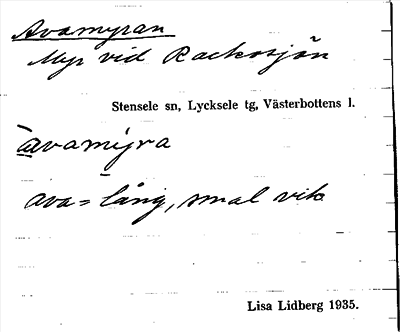 Avamyran
Myr vid Racksjön
Stensele sn, Lycksele tg, Västerbottens l.
àvamyra
ava = lång, smal vik
Lisa Lidberg 1935.